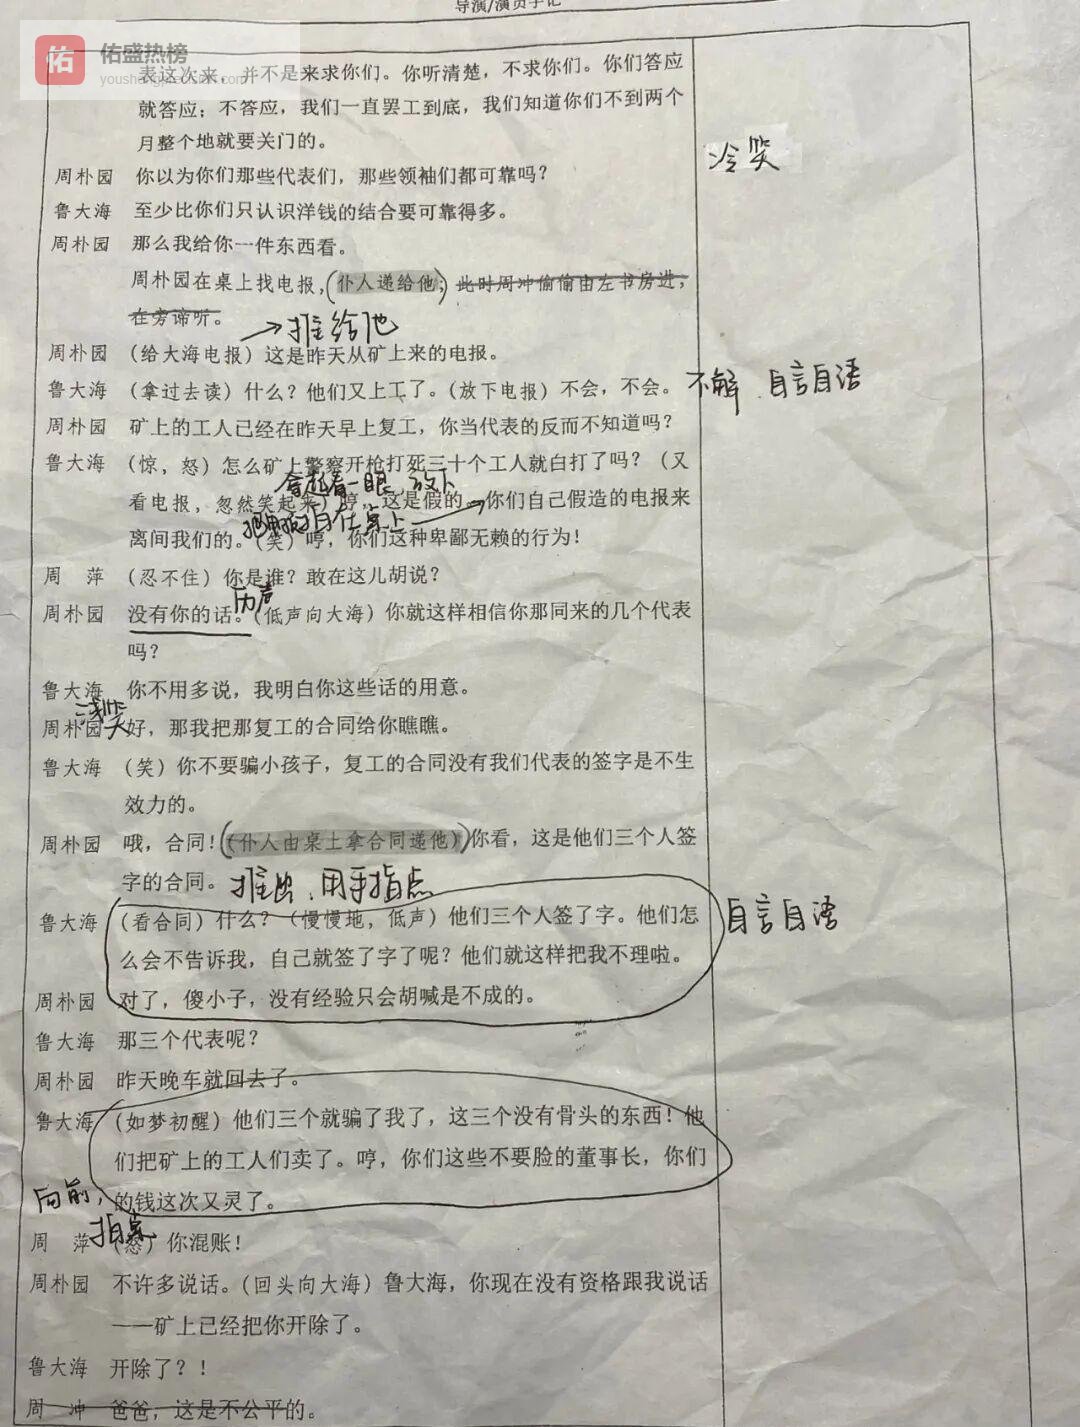 导演/演员手记
佑
佑盛热榜
表这次来，并不是来求你们。你听清楚，不求你们。你们答应
就答应；不答应，我们一直罢工到底，我们知道你们不到两个
月整个地就要关门的。
冷笑
周朴园 你以为你们那些代表们，那些领袖们都可靠吗？
鲁大海 至少比你们只认识洋钱的结合要可靠得多。
周朴园 那么我给你一件东西看。
周朴园在桌上找电报，（仆人递给他；）此时周冲偷偷由左书房进，
在旁谛听。
→推给他
周朴园 （给大海电报）这是昨天从矿上来的电报。
鲁大海 （拿过去读）什么？他们又上工了。（放下电报）不会，不会。 不解、自言自语
周朴园 矿上的工人已经在昨天早上复工，你当代表的反而不知道吗？
鲁大海 （惊，怒）怎么矿上警察开枪打死三十个工人就白打了吗？（又
拿起看一眼 放下
看电报，忽然笑起来）哼，这是假的。你们自己假造的电报来
离间我们的。（笑）哼，你们这种卑鄙无赖的行为！
周 萍 （忍不住）你是谁？敢在这儿胡说？
厉声
周朴园 没有你的话。（低声向大海）你就这样相信你那同来的几个代表
吗？
鲁大海 你不用多说，我明白你这些话的用意。
浅笑
周朴园 好，那我把那复工的合同给你瞧瞧。
鲁大海 （笑）你不要骗小孩子，复工的合同没有我们代表的签字是不生
效力的。
周朴园 哦，合同！（仆人由桌上拿合同递他）你看，这是他们三个人签
字的合同。 推出、用手指点
鲁大海 （看合同）什么？（慢慢地，低声）他们三个人签了字。他们怎 自言自语
么会不告诉我，自己就签了字了呢？他们就这样把我不理啦。
周朴园 对了，傻小子，没有经验只会胡喊是不成的。
鲁大海 那三个代表呢？
周朴园 昨天晚车就回去了。
鲁大海 （如梦初醒）他们三个就骗了我了，这三个没有骨头的东西！他
们把矿上的工人们卖了。哼，你们这些不要脸的董事长，你们
向前， 的钱这次又灵了。
拍桌
周 萍 （怒）你混账！
周朴园 不许多说话。（回头向大海）鲁大海，你现在没有资格跟我说话
——矿上已经把你开除了。
鲁大海 开除了？！
周 冲 爸爸，这是不公平的。